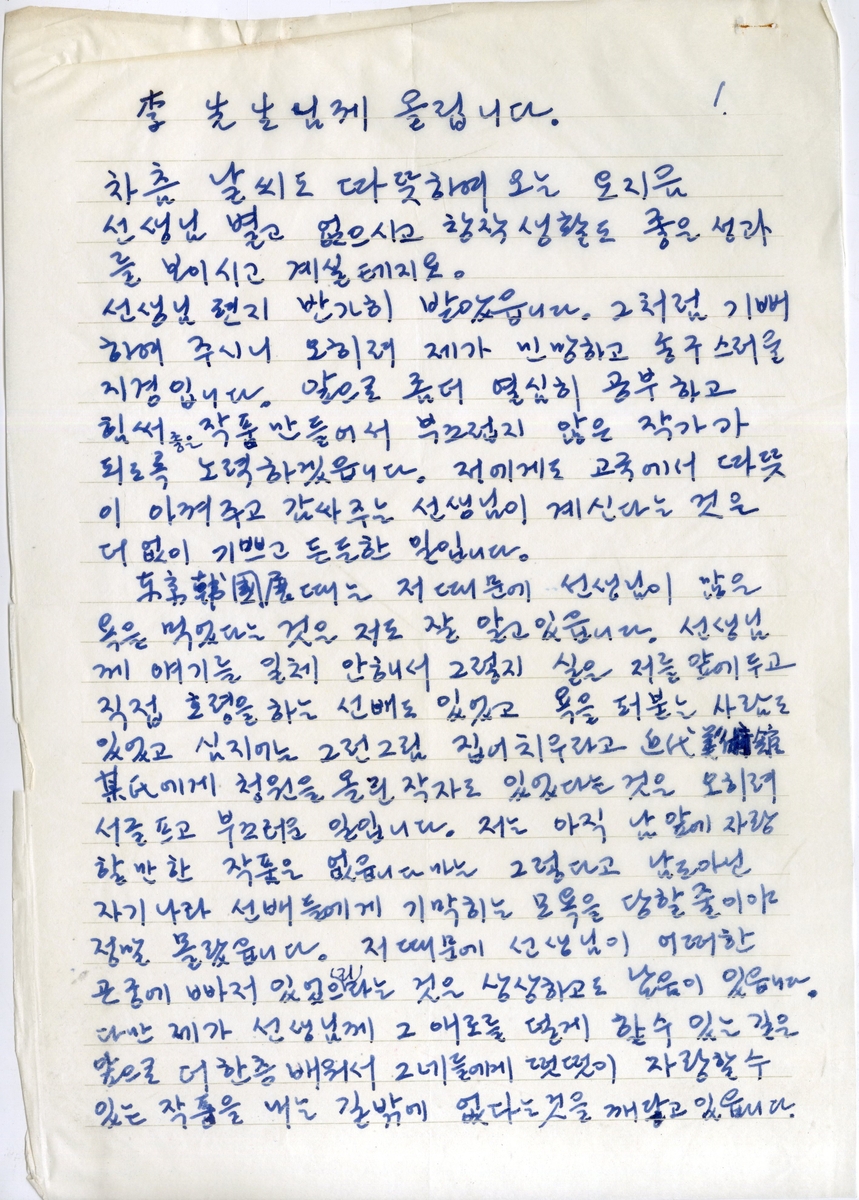 李 선생님께 올립니다. 1.
차츰 날씨도 따뜻하여 오는 요지음
선생님 별고 없으시고 창작생활도 좋은 성과
를 보이시고 계실테지요.
선생님 편지 반가히 받았읍니다. 그처럼 기뻐
하여 주시니 오히려 제가 민망하고 송구스러울
지경입니다. 앞으로 좀더 열심히 공부하고
힘써 좋은 작품 만들어서 부끄럽지 않은 작가가
되도록 노력하겠읍니다. 저에게도 고국에서 따뜻
이 아껴주고 감싸주는 선생님이 계신다는 것은
더없이 기쁘고 든든한 일입니다.
东京韓國展때는 저 때문에 선생님이 많은
욕을 먹었다는 것을 저도 잘 알고있읍니다. 선생님
께 얘기를 일체 안해서 그렇지 실은 저를 앞에 두고
직접 호령을 하는 선배도 있었고 욕을 퍼붇는 사람도
있었고 심지어는 그런그림 집어치우라고 近代美術館
某氏에게 청원을 올린 작자도 있었다는 것은 오히려
서글프고 부끄러운 일입니다. 저는 아직 남앞에 자랑
할만한 작품은 없읍니다마는 그렇다고 남도아닌
자기나라 선배들에게 기막히는 모욕을 당할줄이야
정말 몰랐읍니다. 저때문에 선생님이 어떠한
곤중에 빠저 있었으리라는 것은 상상하고도 남음이 있읍니다.
다만 제가 선생님께 그 애로를 덜게 할수 있는 길은
앞으로 더한층 배워서 그네들에게 떳떳이 자랑할수
있는 작품을 내는 길밖에 없다는것을 깨닫고 있읍니다.